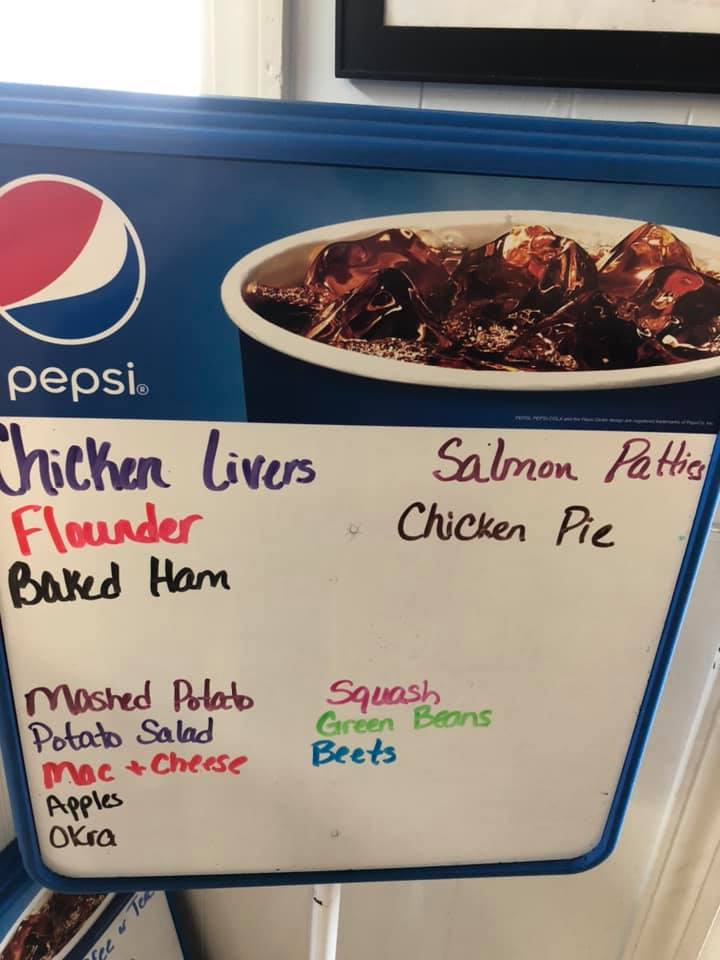 pepsi®
Chicken Livers
Salmon Patties
Flounder
Chicken Pie
Baked Ham
Mashed Potato
Squash
Potato Salad
Green Beans
Mac + Cheese
Beets
Apples
Okra